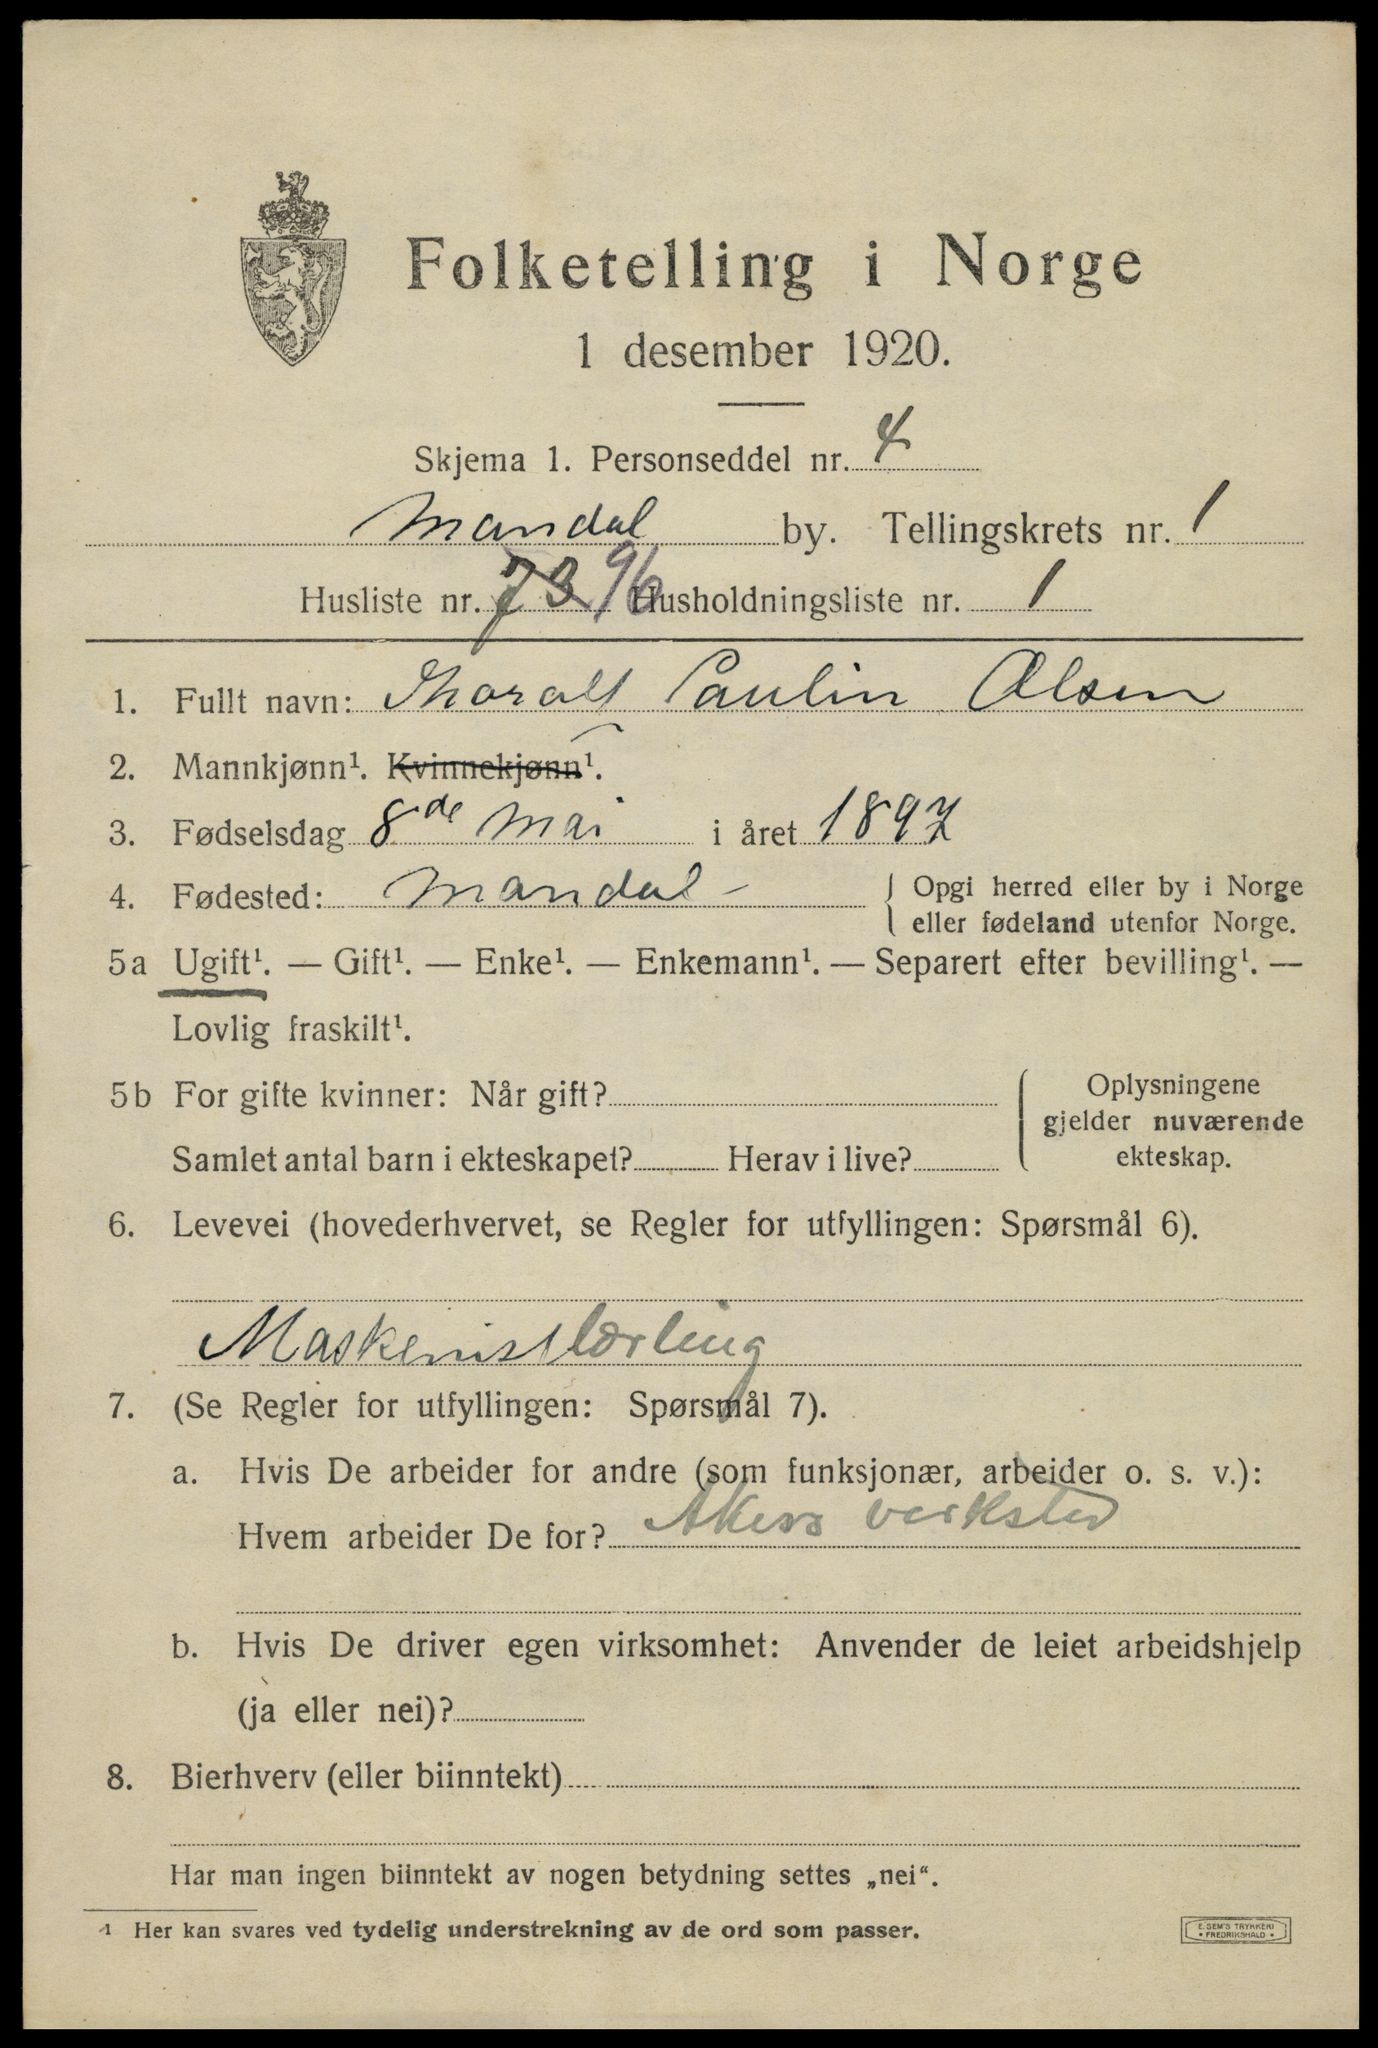 Folketelling i Norge
1 desember 1920.
Skjema 1. Personseddel nr. 4
Mandal by. Tellingskrets nr. 1
Husliste nr. 73 96 Husholdningsliste nr. 1
1. Fullt navn: Thoralf Paulin Olsen
2. Mannkjønn¹. Kvinnekjønn¹.
3. Fødselsdag 8de Mai i året 1897
4. Fødested: Mandal - { Opgi herred eller by i Norge
eller fødeland utenfor Norge.
5a Ugift¹. — Gift¹. — Enke¹. — Enkemann¹. — Separert efter bevilling¹. —
Lovlig fraskilt¹.
5b For gifte kvinner: Når gift?
Samlet antal barn i ekteskapet? Herav i live?
Oplysningene
gjelder nuværende
ekteskap.
6. Levevei (hovederhvervet, se Regler for utfyllingen: Spørsmål 6).
Maskenistlærling
7. (Se Regler for utfyllingen: Spørsmål 7).
a. Hvis De arbeider for andre (som funksjonær, arbeider o. s. v.):
Hvem arbeider De for? Akers verksted
b. Hvis De driver egen virksomhet: Anvender de leiet arbeidshjelp
(ja eller nei)?
8. Bierhverv (eller biinntekt)
Har man ingen biinntekt av nogen betydning settes „nei“.
¹ Her kan svares ved tydelig understrekning av de ord som passer.
E. SEM'S TRYKKERI
• FREDRIKSHALD •